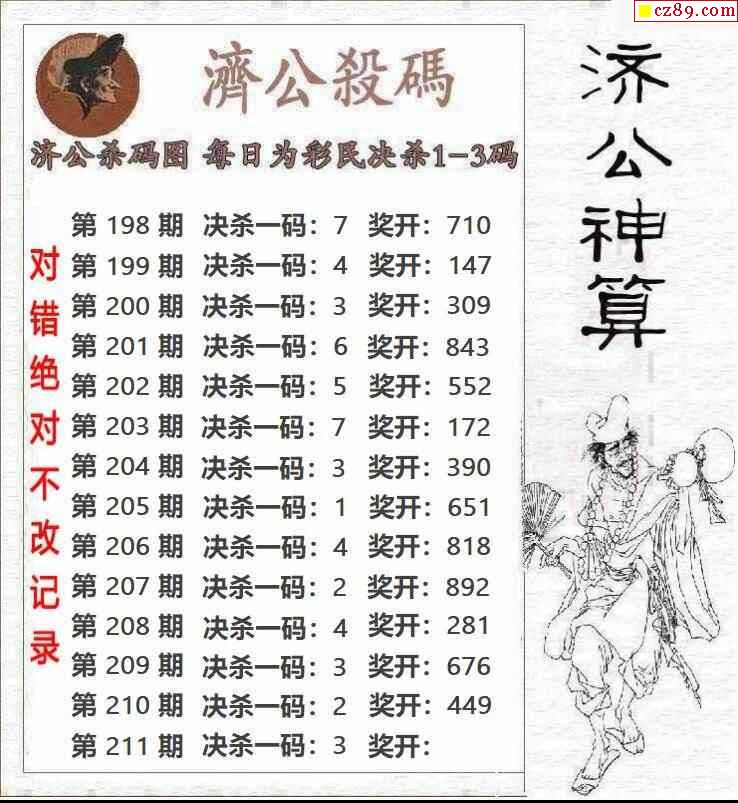 cz89.com
濟公殺碼
济公杀码图 每日为彩民决杀1-3码
第 198 期 决杀一码：7 奖开：710
第 199 期 决杀一码：4 奖开：147
第 200 期 决杀一码：3 奖开：309
第 201 期 决杀一码：6 奖开：843
第 202 期 决杀一码：5 奖开：552
第 203 期 决杀一码：7 奖开：172
第 204 期 决杀一码：3 奖开：390
第 205 期 决杀一码：1 奖开：651
第 206 期 决杀一码：4 奖开：818
第 207 期 决杀一码：2 奖开：892
第 208 期 决杀一码：4 奖开：281
第 209 期 决杀一码：3 奖开：676
第 210 期 决杀一码：2 奖开：449
第 211 期 决杀一码：3 奖开：
对错绝对不改记录
济公神算